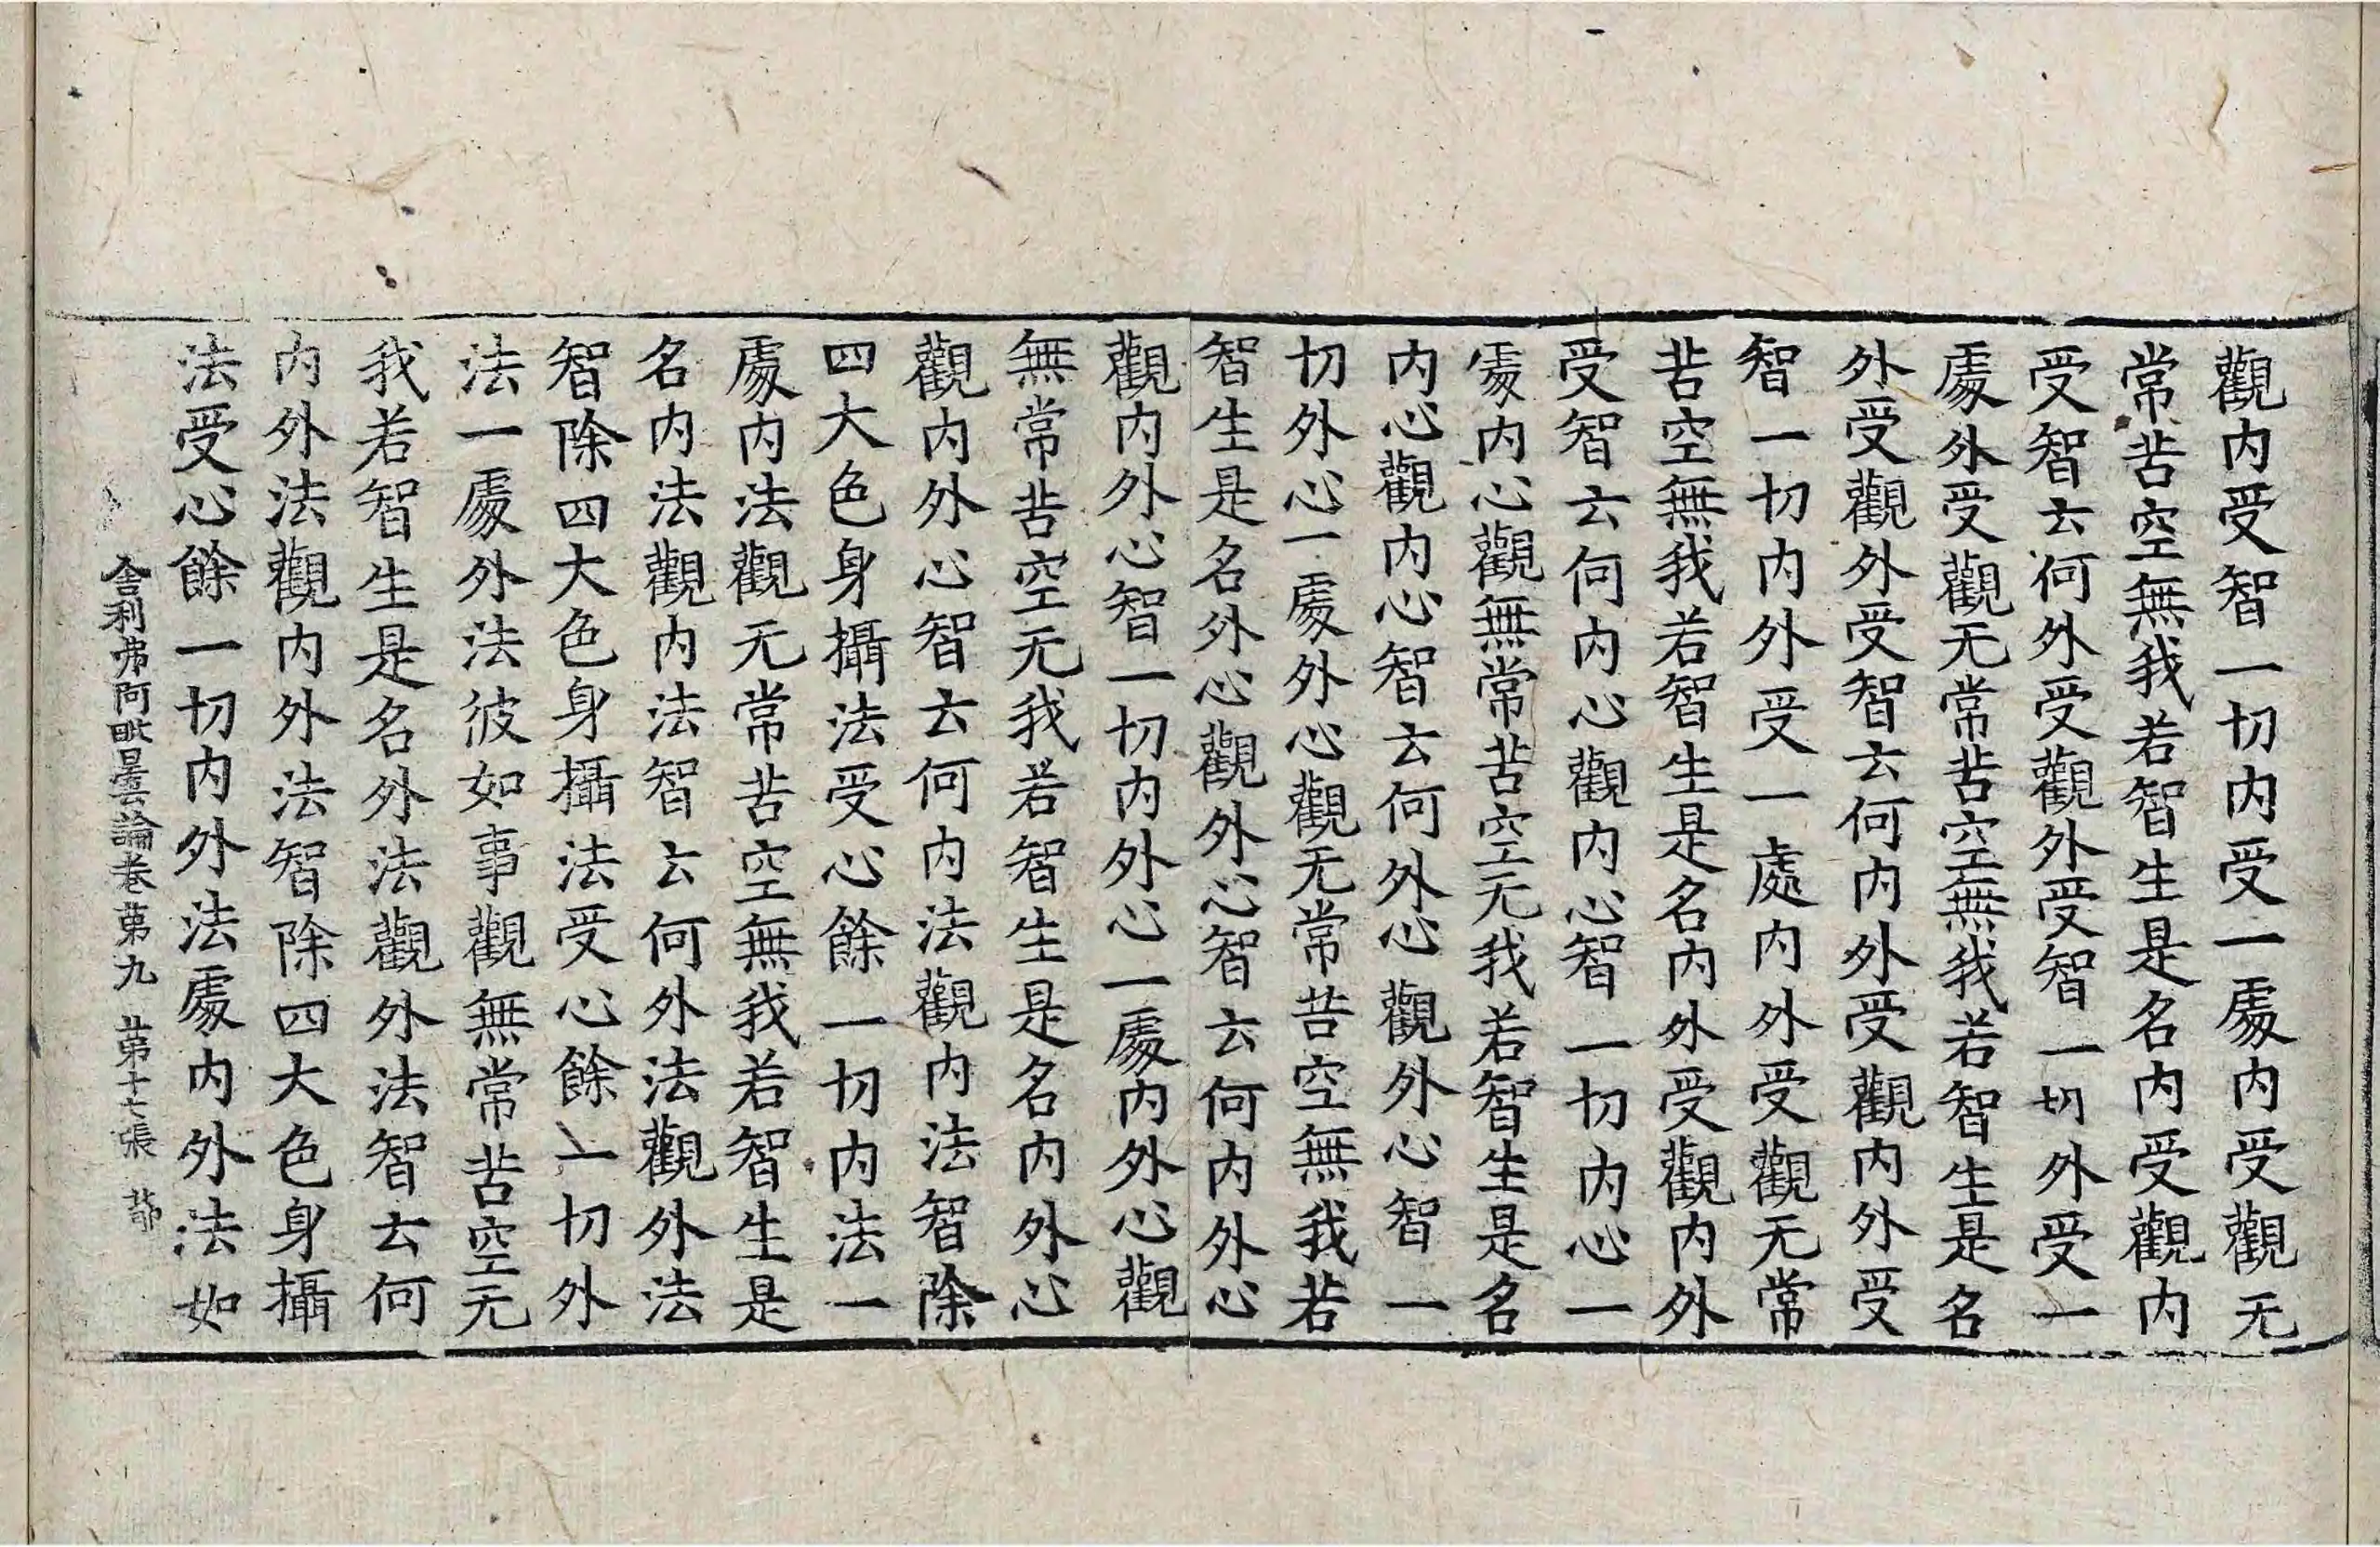 觀内受智一切内受一䖏内受觀无
常苦空無我若智生是名内受觀内
受智云何外受觀外受智一切外受一
䖏外受觀无常苦空無我若智生是名
外受觀外受智云何内外受觀内外受
智一切内外受一處内外受觀无常
苦空無我若智生是名内外受觀内外
受智云何内心觀内心智一切内心一
䖏内心觀無常苦空无我若智生是名
内心觀内心智云何外心觀外心智一
切外心一䖏外心觀无常苦空無我若
智生是名外心觀外心智云何内外心
觀内外心智一切内外心一䖏内外心觀
無常苦空无我若智生是名内外心
觀内外心智云何内法觀内法智除
四大色身攝法受心餘一切内法一
䖏内法觀无常苦空無我若智生是
名内法觀内法智云何外法觀外法
智除四大色身攝法受心餘一切外
法一䖏外法彼如事觀無常苦空无
我若智生是名外法觀外法智云何
内外法觀内外法智除四大色身攝
法受心餘一切内外法䖏内外法如
舍利弗阿毗曇論卷第九 第十七張 㔟